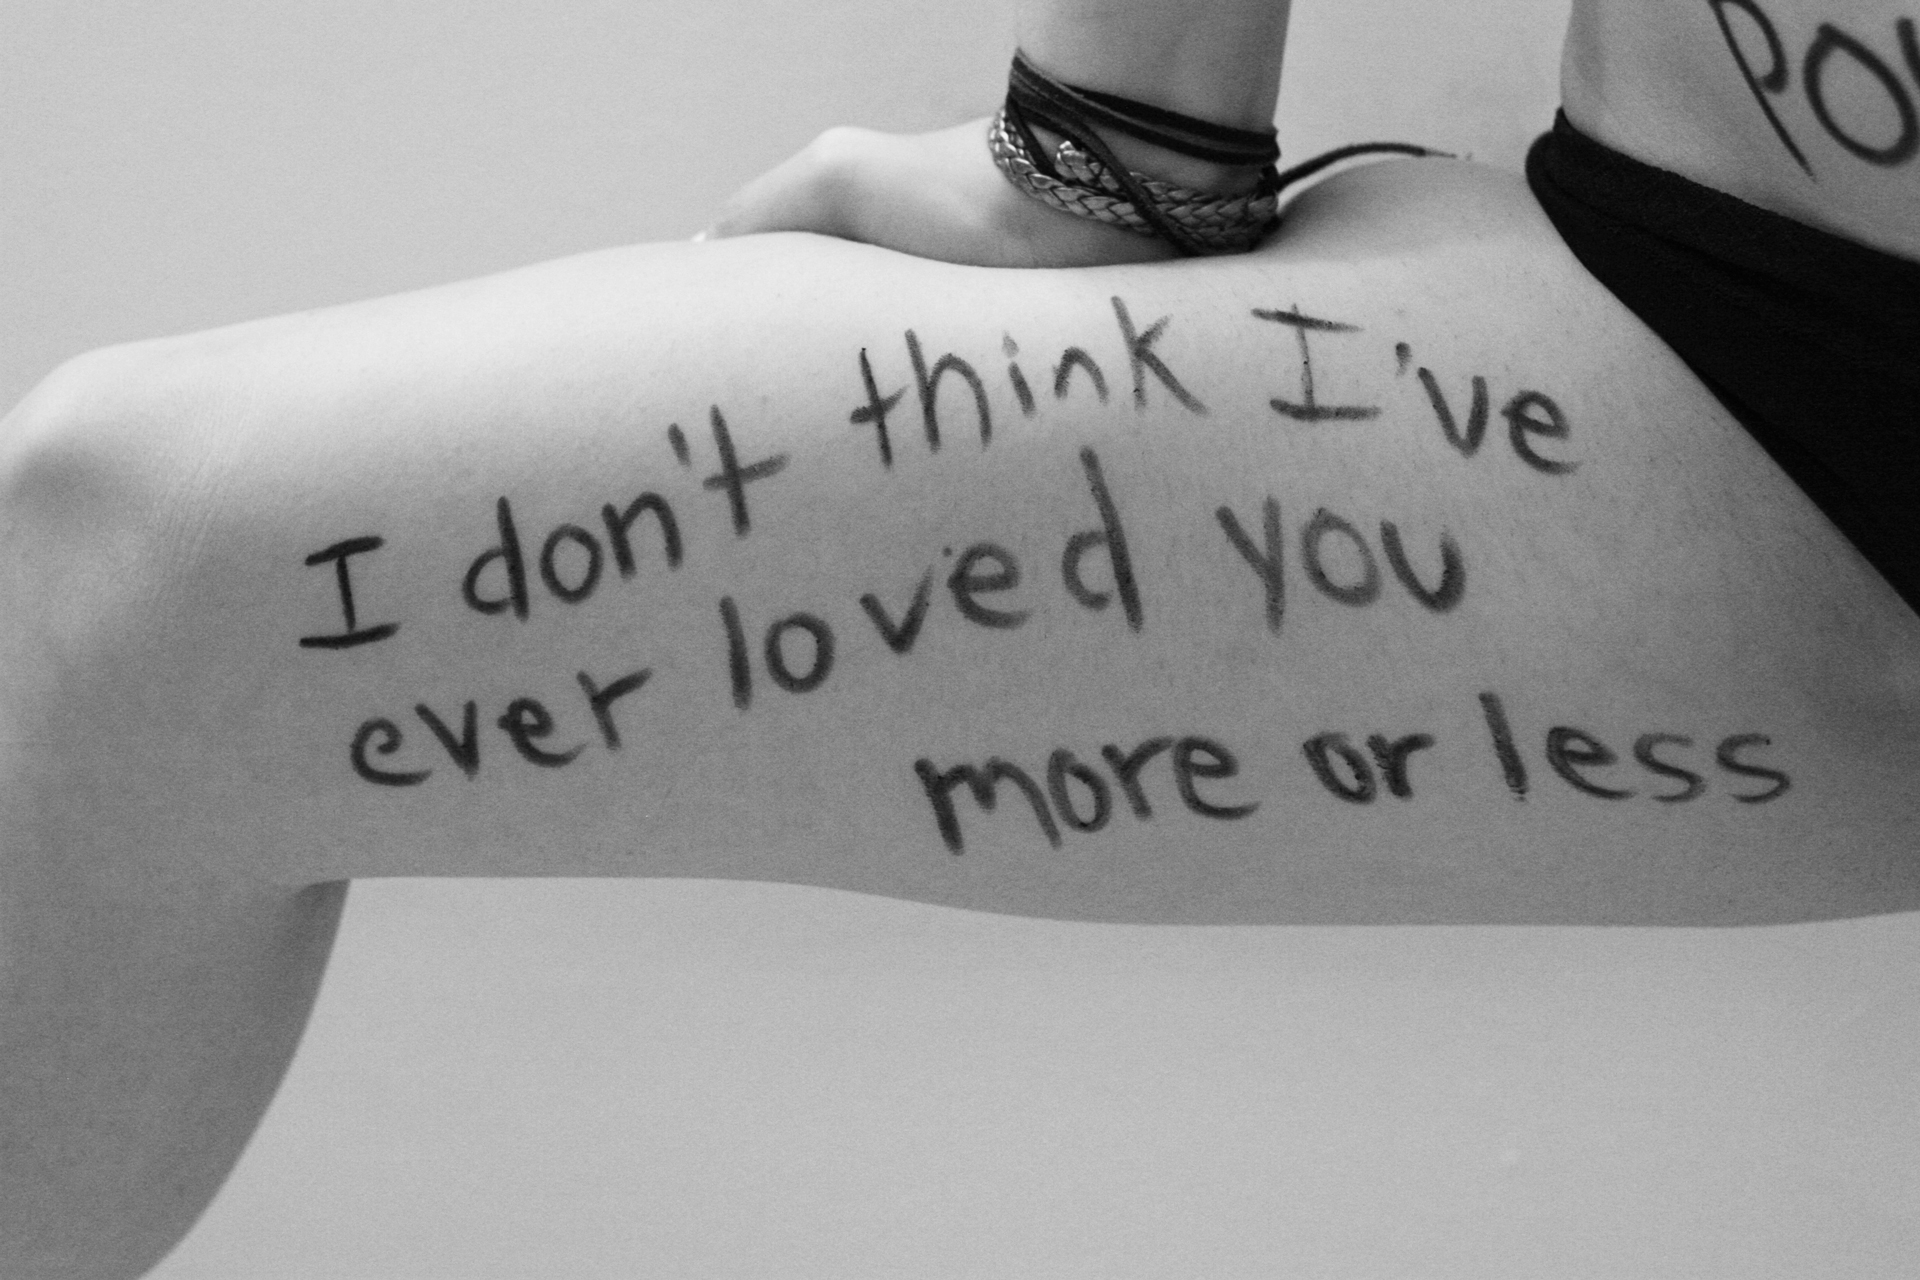 I don't think I've
ever loved you
more or less